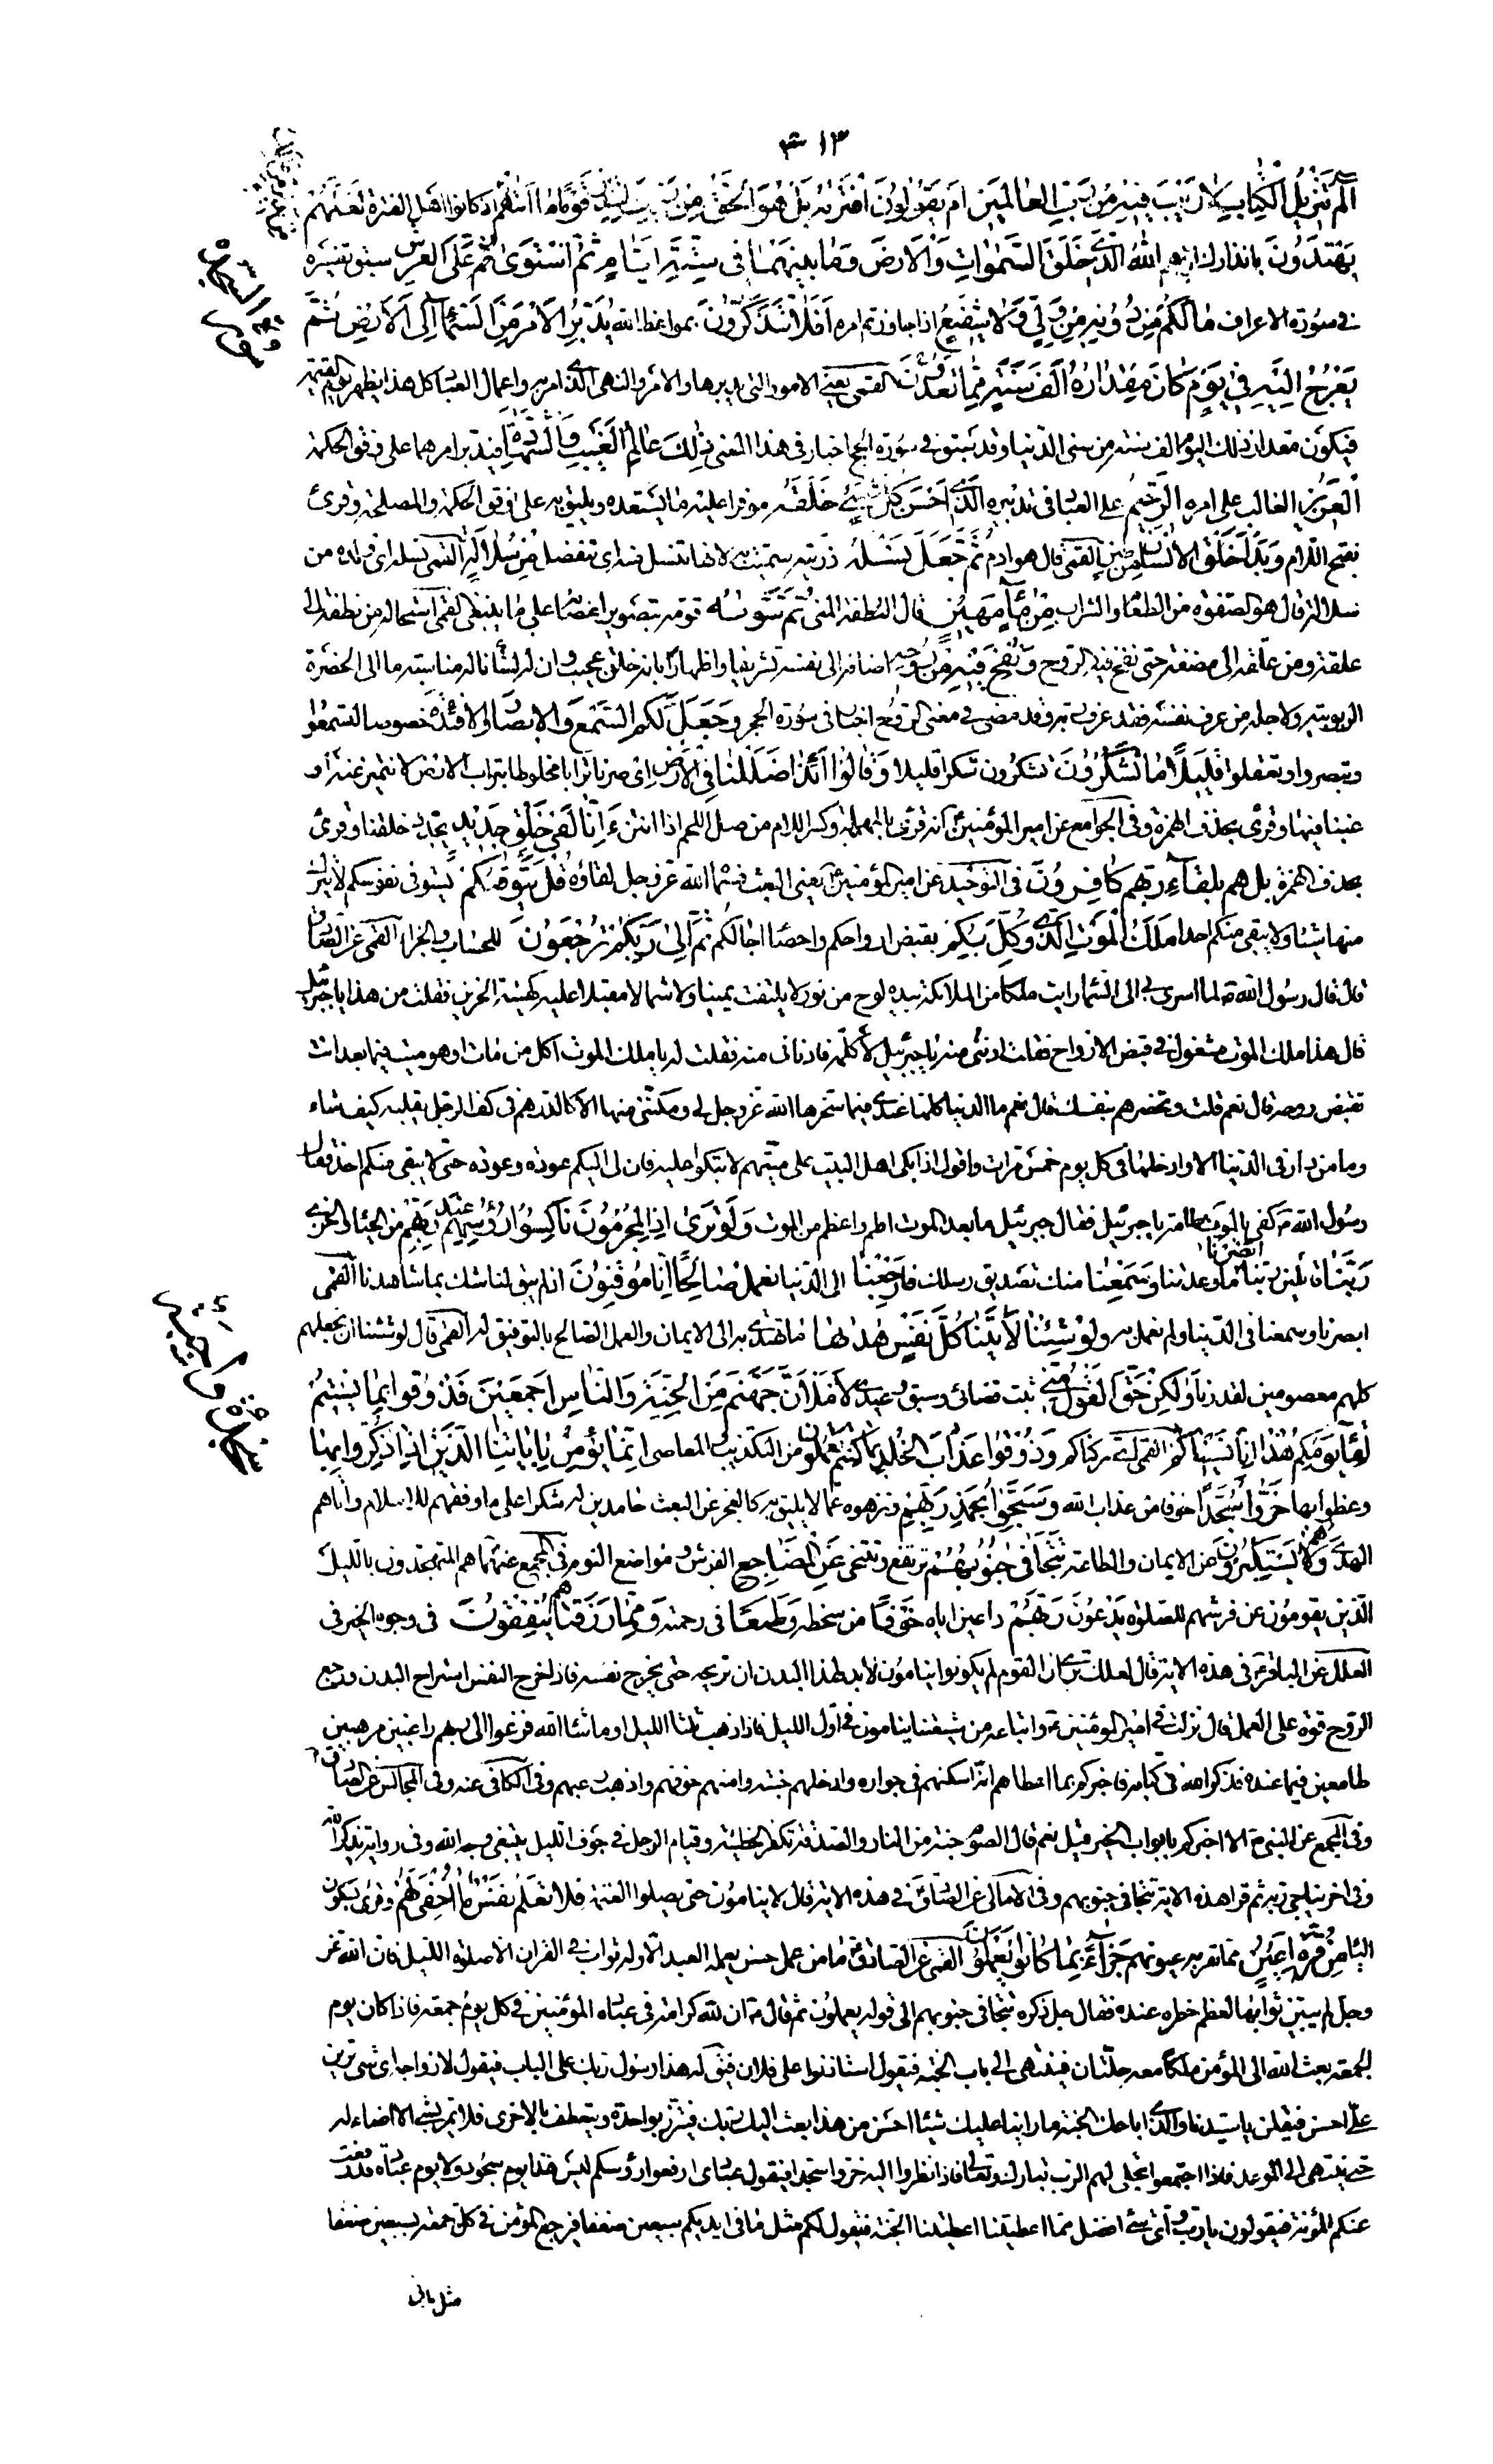 ٣١٣
الم تنزيل الكتاب لا ريب فيه من رب العالمين ام يقولون افتريه بل هو الحق من ربك لتنذر قوما ما اتيهم اذ كانوا اهل الفترة لعلهم
يهتدون بانذارك اياهم الله الذي خلق السموات والارض وما بينهما في ستة ايام ثم استوى على العرش سبق تفسيره
في سورة الاعراف ما لكم من دونه من ولي ولا شفيع اذا جاوزتم امره افلا تتذكرون بمواعظ الله يدبر الامر من السماء الى الارض ثم
يعرج اليه في يوم كان مقداره الف سنة مما تعدون القمي يعني الامور التي يدبرها والامر والنهي الذي امر به واعمال العباد كل هذا يظهر يوم القيمة
فيكون مقدار ذلك اليوم الف سنة من سني الدنيا وقد سبق في سورة الحج اخبار في هذا المعنى ذلك عالم الغيب والشهادة فيدبر امرهما على وفق الحكمة
العزيز الغالب على امره الرحيم على العباد في تدبيره الذي احسن كل شيء خلقه موفرا عليه ما يستعده ويليق به على وفق الحكمة والمصلحة وقرئ
بفتح اللام وبدأ خلق الانسان من طين القمي قال هو ادم ثم جعل نسله ذريته سميت به لانها تنسل منه اي تنفصل من سلالة القمي نسله اي ولده من
سلالة قال هو الصفوة من الطعام والشراب من ماء مهين قال النطفة المني ثم سويه قومه بتصوير اعضائه على ما ينبغي القمي استحاله من نطفة الى
علقة ومن علقة الى مضغة حتى نفخ فيه الروح ونفخ فيه من روحه اضافه الى نفسه تشريفا واظهارا بانه خلق عجيب وان له لشأنا له مناسبة ما الى الحضرة
الربوبية ولاجله من عرف نفسه فقد عرف ربه وقد مضى في معنى الروح اخبار في سورة الحجر وجعل لكم السمع والابصار والافئدة خصوصا لتسمعوا
وتبصروا وتعقلوا قليلا ما تشكرون تشكرون شكرا قليلا وقالوا ائذا ضللنا في الارض اي صرنا ترابا مخلوطا بتراب الارض لا نتميز عنه او
غبنا فيها وقرئ بحذف الهمزة وفي الجوامع عن امير المؤمنين انه قرئ بالمهملة وكسر اللام من صل اللحم اذا انتن ءانا لفي خلق جديد يجدد خلقنا وقرئ
بحذف الهمزة بل هم بلقاء ربهم كافرون في التوحيد عن امير المؤمنين يعني البعث فسماه الله عز وجل لقاءه قل يتوفيكم يستوفي نفوسكم لا يترك
منها شيئا ولا يبقي منكم احدا ملك الموت الذي وكل بكم بقبض ارواحكم واحصاء اجالكم ثم الى ربكم ترجعون للحساب والجزاء القمي عن الصادق
قال قال رسول الله لما اسري بي الى السماء رايت ملكا من الملائكة بيده لوح من نور لا يلتفت يمينا ولا شمالا مقبلا عليه كهيئة الحزين فقلت من هذا يا جبرئيل
قال هذا ملك الموت مشغول في قبض الارواح فقلت ادنني منه يا جبرئيل لاكلمه فادناني منه فقلت له يا ملك الموت اكل من مات او هو ميت فيما بعد انت
تقبض روحه قال نعم قلت وتحضرهم بنفسك قال نعم ما الدنيا كلها عندي فيما سخرها الله عز وجل لي ومكنني منها الا كالدرهم في كف الرجل يقلبه كيف شاء
وما من دار في الدنيا الا وادخلها في كل يوم خمس مرات واقول اذا بكى اهل البيت على ميتهم لا تبكوا عليه فان لي اليكم عودة وعودة حتى لا يبقى منكم احد فقال
رسول الله كفى بالموت طامة يا جبرئيل فقال جبرئيل ما بعد الموت اطم واعظم من الموت ولو ترى اذ المجرمون ناكسوا رؤسهم عند ربهم من الحياء والخزي
ربنا قائلين ربنا ابصرنا ما وعدتنا وسمعنا منك تصديق رسلك فارجعنا الى الدنيا نعمل صالحا انا موقنون اذ لم يبق لنا شك بما شاهدنا القمي
ابصرنا وسمعنا في الدنيا ولم نعمل به ولو شئنا لاتينا كل نفس هديها ما تهتدي به الى الايمان والعمل الصالح بالتوفيق له القمي قال لو شئنا ان نجعلهم
كلهم معصومين لقدرنا ولكن حق القول مني ثبت قضائي وسبق وعيدي لاملأن جهنم من الجنة والناس اجمعين فذوقوا بما نسيتم
لقاء يومكم هذا انا نسيناكم القمي اي تركناكم وذوقوا عذاب الخلد بما كنتم تعملون من التكذيب والمعاصي انما يؤمن باياتنا الذين اذا ذكروا بها
وعظوا بها خروا سجدا خوفا من عذاب الله وسبحوا بحمد ربهم ونزهوه عما لا يليق به كالعجز عن البعث حامدين له شكرا على ما وفقهم للاسلام واتاهم
الهدى وهم لا يستكبرون عن الايمان والطاعة تتجافى جنوبهم ترتفع وتتنحى عن المضاجع الفرش ومواضع النوم في المجمع عنهما هم المتهجدون بالليل
الذين يقومون عن فرشهم للصلوة يدعون ربهم داعين اياه خوفا من سخطه وطمعا في رحمته ومما رزقناهم ينفقون في وجوه الخير في
العلل عن الباقر في هذه الاية قال لعلك ترى ان القوم لم يكونوا ينامون لابد لهذا البدن ان تريحه حتى يخرج نفسه فاذا خرج النفس استراح البدن ورجع
الروح قوة على العمل قال نزلت في امير المؤمنين واتباعه من شيعتنا ينامون في اول الليل فاذا ذهب ثلثا الليل او ما شاء الله فزعوا الى ربهم راغبين مرهبين
طامعين فيما عنده فذكر الله في كتابه فاخبركم بما اعطاهم انه اسكنهم في جواره وادخلهم جنته وامنهم خوفهم واذهب رعبهم وفي الكافي عنه وفي المجالس عن الصادق
وفي المجمع عن النبي الا اخبركم بابواب الخير قيل نعم قال الصوم جنة من النار والصدقة تكفر الخطيئة وقيام الرجل في جوف الليل يبتغي وجه الله وفي رواية يذكر الله
وفي اخرى يناجي ربه ثم قرا هذه الاية تتجافى جنوبهم وفي الامالي عن الصادق في هذه الاية قال لا ينامون حتى يصلوا العتمة فلا تعلم نفس ما اخفي لهم وقرئ بسكون
الياء من قرة اعين مما تقر به عيونهم جزاء بما كانوا يعملون القمي عن الصادق ما من عمل حسن يعمله العبد الا وله ثواب في القران الا صلوة الليل فان الله عز
وجل لم يبين ثوابها لعظم خطره عنده فقال جل ذكره تتجافى جنوبهم الى قوله يعملون ثم قال ان لله كرامة في عباده المؤمنين في كل يوم جمعة فاذا كان يوم
الجمعة بعث الله الى المؤمن ملكا معه حلتان فينتهي الى باب الجنة فيقول استاذنوا على فلان فيق له هذا رسول ربك على الباب فيقول لازواجه اي شيء ترين
علي احسن فيقلن يا سيدنا والذي اباحك الجنة ما راينا عليك شيئا احسن من هذا بعث اليك ربك فيتزر بواحدة ويتعطف بالاخرى فلا يمر بشيء الا اضاء له
حتى ينتهي الى الموعد فاذا اجتمعوا تجلى لهم الرب تبارك وتعالى فاذا نظروا اليه خروا سجدا فيقول عبادي ارفعوا رؤسكم ليس هذا يوم سجود ولا يوم عبادة قد رفعت
عنكم المؤنة فيقولون يا رب واي شيء افضل مما اعطيتنا اعطيتنا الجنة فيقول لكم مثل ما في ايديكم سبعين ضعفا فيرجع المؤمن في كل جمعة بسبعين ضعفا
مثل ما في
سورة السجدة
سجدة واجبة